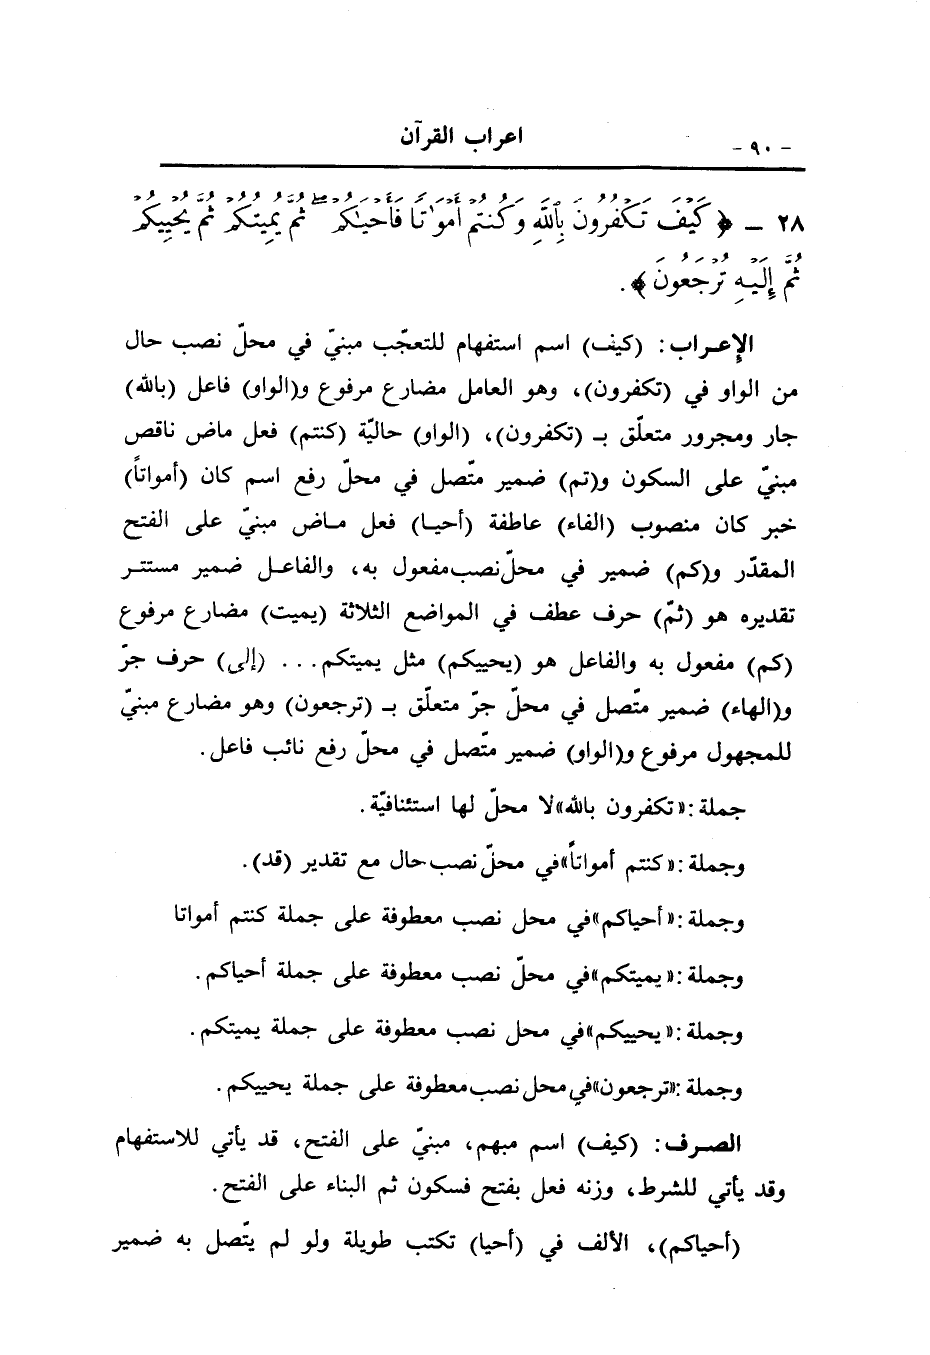 - ٩٠ - اعراب القرآن
٢٨ - ﴿ كَيْفَ تَكْفُرُونَ بِاللَّهِ وَكُنتُمْ أَمْوَاتًا فَأَحْيَاكُمْ ثُمَّ يُمِيتُكُمْ ثُمَّ يُحْيِيكُمْ
ثُمَّ إِلَيْهِ تُرْجَعُونَ ﴾.
الإعراب: (كيف) اسم استفهام للتعجّب مبنيّ في محلّ نصب حال
من الواو في (تكفرون)، وهو العامل مضارع مرفوع و(الواو) فاعل (بالله)
جار ومجرور متعلّق بـ (تكفرون)، (الواو) حاليّة (كنتم) فعل ماض ناقص
مبنيّ على السكون و(تم) ضمير متّصل في محلّ رفع اسم كان (أمواتاً)
خبر كان منصوب (الفاء) عاطفة (أحيا) فعل ماض مبنيّ على الفتح
المقدّر و(كم) ضمير في محلّ نصب مفعول به، والفاعل ضمير مستتر
تقديره هو (ثمّ) حرف عطف في المواضع الثلاثة (يميت) مضارع مرفوع
(كم) مفعول به والفاعل هو (يحييكم) مثل يميتكم... (إلى) حرف جرّ
و(الهاء) ضمير متّصل في محلّ جرّ متعلّق بـ (ترجعون) وهو مضارع مبنيّ
للمجهول مرفوع و(الواو) ضمير متّصل في محلّ رفع نائب فاعل.
جملة: «تكفرون بالله» لا محلّ لها استئنافيّة.
وجملة: «كنتم أمواتاً» في محلّ نصب حال مع تقدير (قد).
وجملة: «أحياكم» في محل نصب معطوفة على جملة كنتم أمواتا
وجملة: «يميتكم» في محلّ نصب معطوفة على جملة أحياكم.
وجملة: «يحييكم» في محل نصب معطوفة على جملة يميتكم.
وجملة: «ترجعون» في محل نصب معطوفة على جملة يحييكم.
الصرف: (كيف) اسم مبهم، مبنيّ على الفتح، قد يأتي للاستفهام
وقد يأتي للشرط، وزنه فعل بفتح فسكون ثم البناء على الفتح.
(أحياكم)، الألف في (أحيا) تكتب طويلة ولو لم يتّصل به ضمير